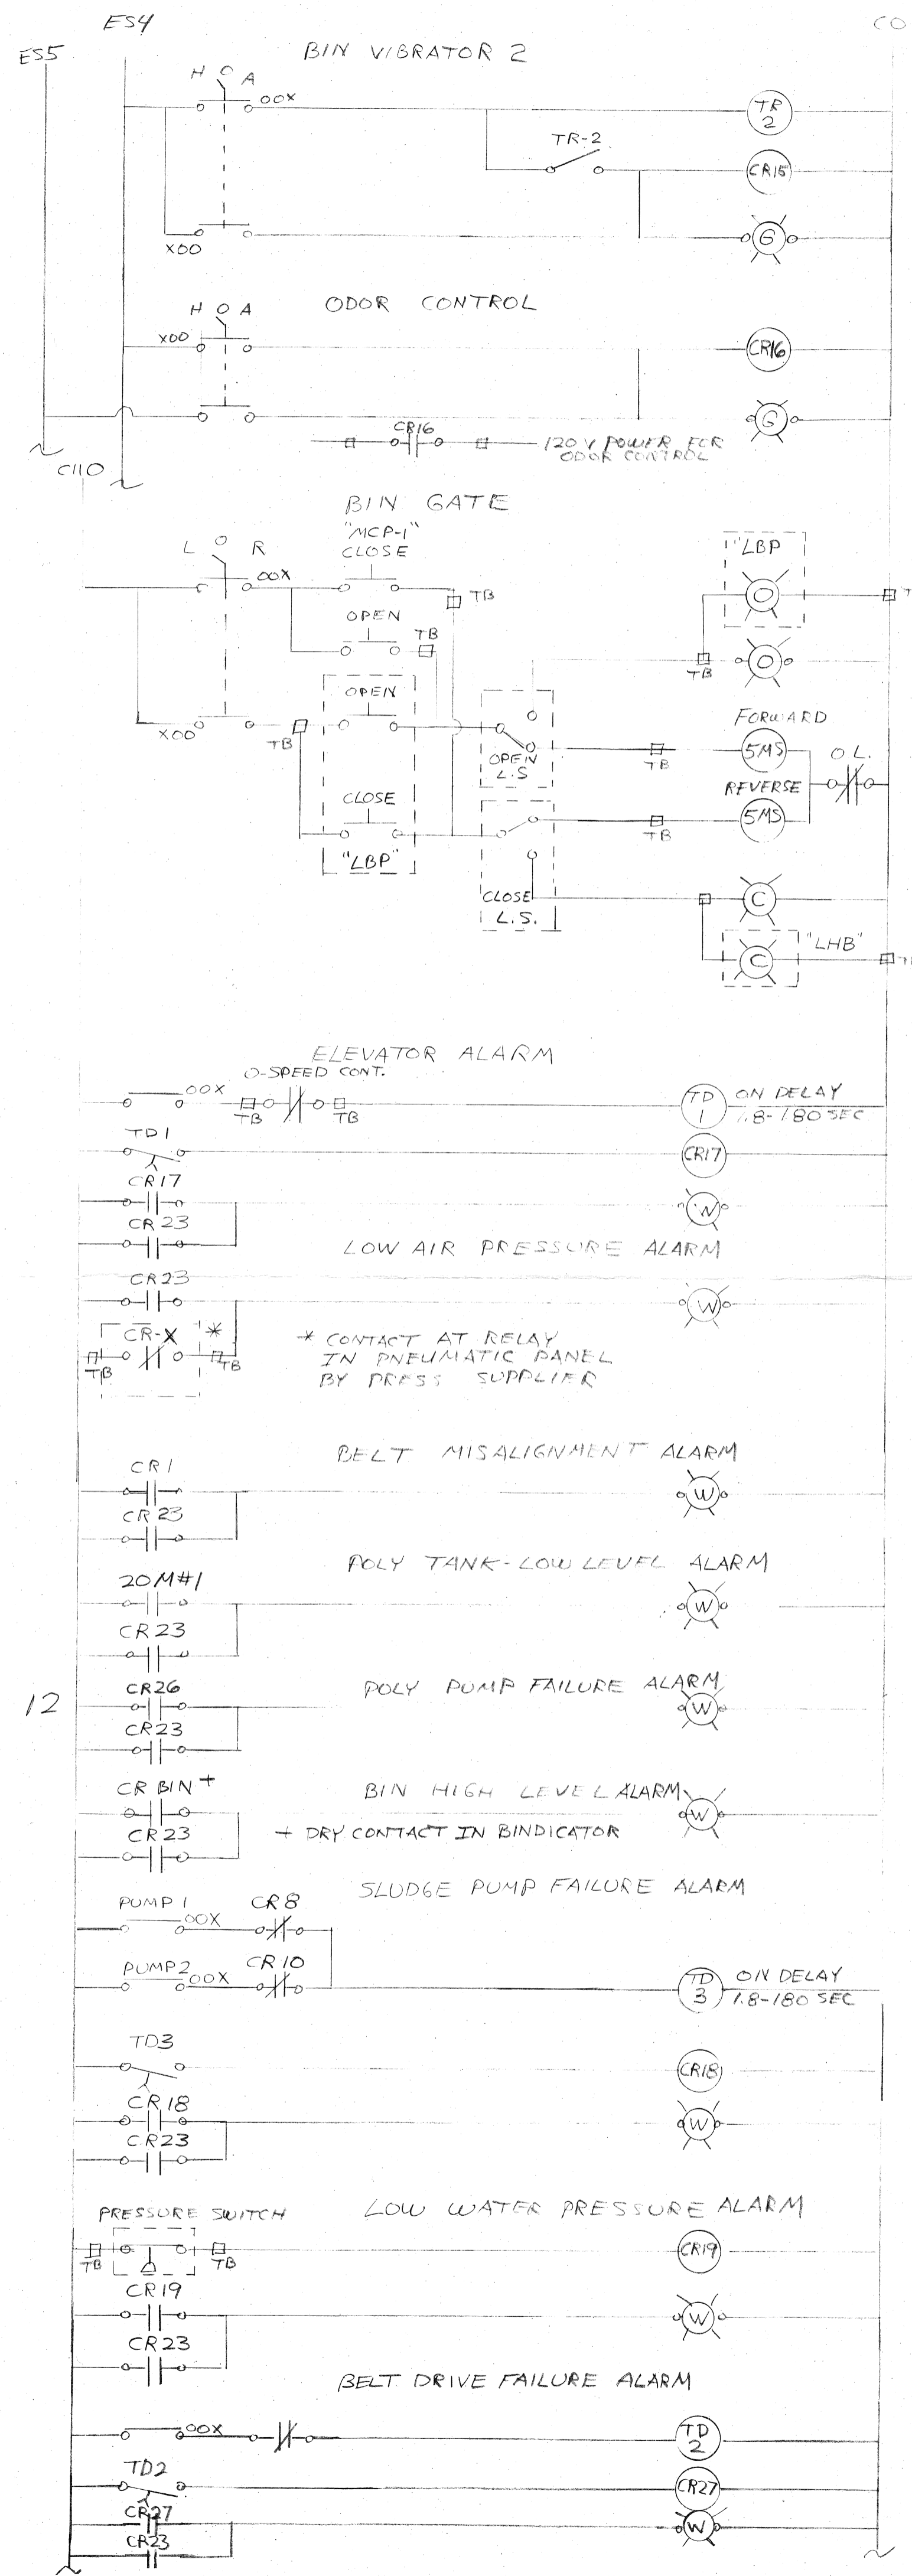 ES4
CO
ES5
BIN VIBRATOR 2
H O A
OOX
TR
2
TR-2
CR15
XOO
G
ODOR CONTROL
H O A
XOO
CR16
G
CR16
120 V POWER FOR
ODOR CONTROL
C110
BIN GATE
"MCP-1"
CLOSE
L O R
OOX
"LBP
O
TB
OPEN
TB
O
TB
OPEN
XOO
TB
FORWARD
5MS
O L.
OPEN
L.S
TB
REVERSE
CLOSE
5MS
TB
"LBP"
CLOSE
L.S.
C
"LHB"
C
ELEVATOR ALARM
O-SPEED CONT.
OOX
TB
TB
TD
1
ON DELAY
1.8-180 SEC
TD1
CR17
CR17
W
CR23
LOW AIR PRESSURE ALARM
CR23
W
CR-X *
TB
TB
* CONTACT AT RELAY
IN PNEUMATIC PANEL
BY PRESS SUPPLIER
BELT MISALIGNMENT ALARM
CR1
W
CR23
POLY TANK-LOW LEVEL ALARM
20M#1
W
CR23
POLY PUMP FAILURE ALARM
12
CR26
W
CR23
BIN HIGH LEVEL ALARM
CR BIN +
W
CR23
+ DRY CONTACT IN BINDICATOR
SLUDGE PUMP FAILURE ALARM
PUMP 1
OOX
CR8
PUMP2
OOX
CR10
TD
3
ON DELAY
1.8-180 SEC
TD3
CR18
CR18
W
CR23
LOW WATER PRESSURE ALARM
PRESSURE SWITCH
TB
TB
CR19
CR19
W
CR23
BELT DRIVE FAILURE ALARM
OOX
TD
2
TD2
CR27
CR27
W
CR23